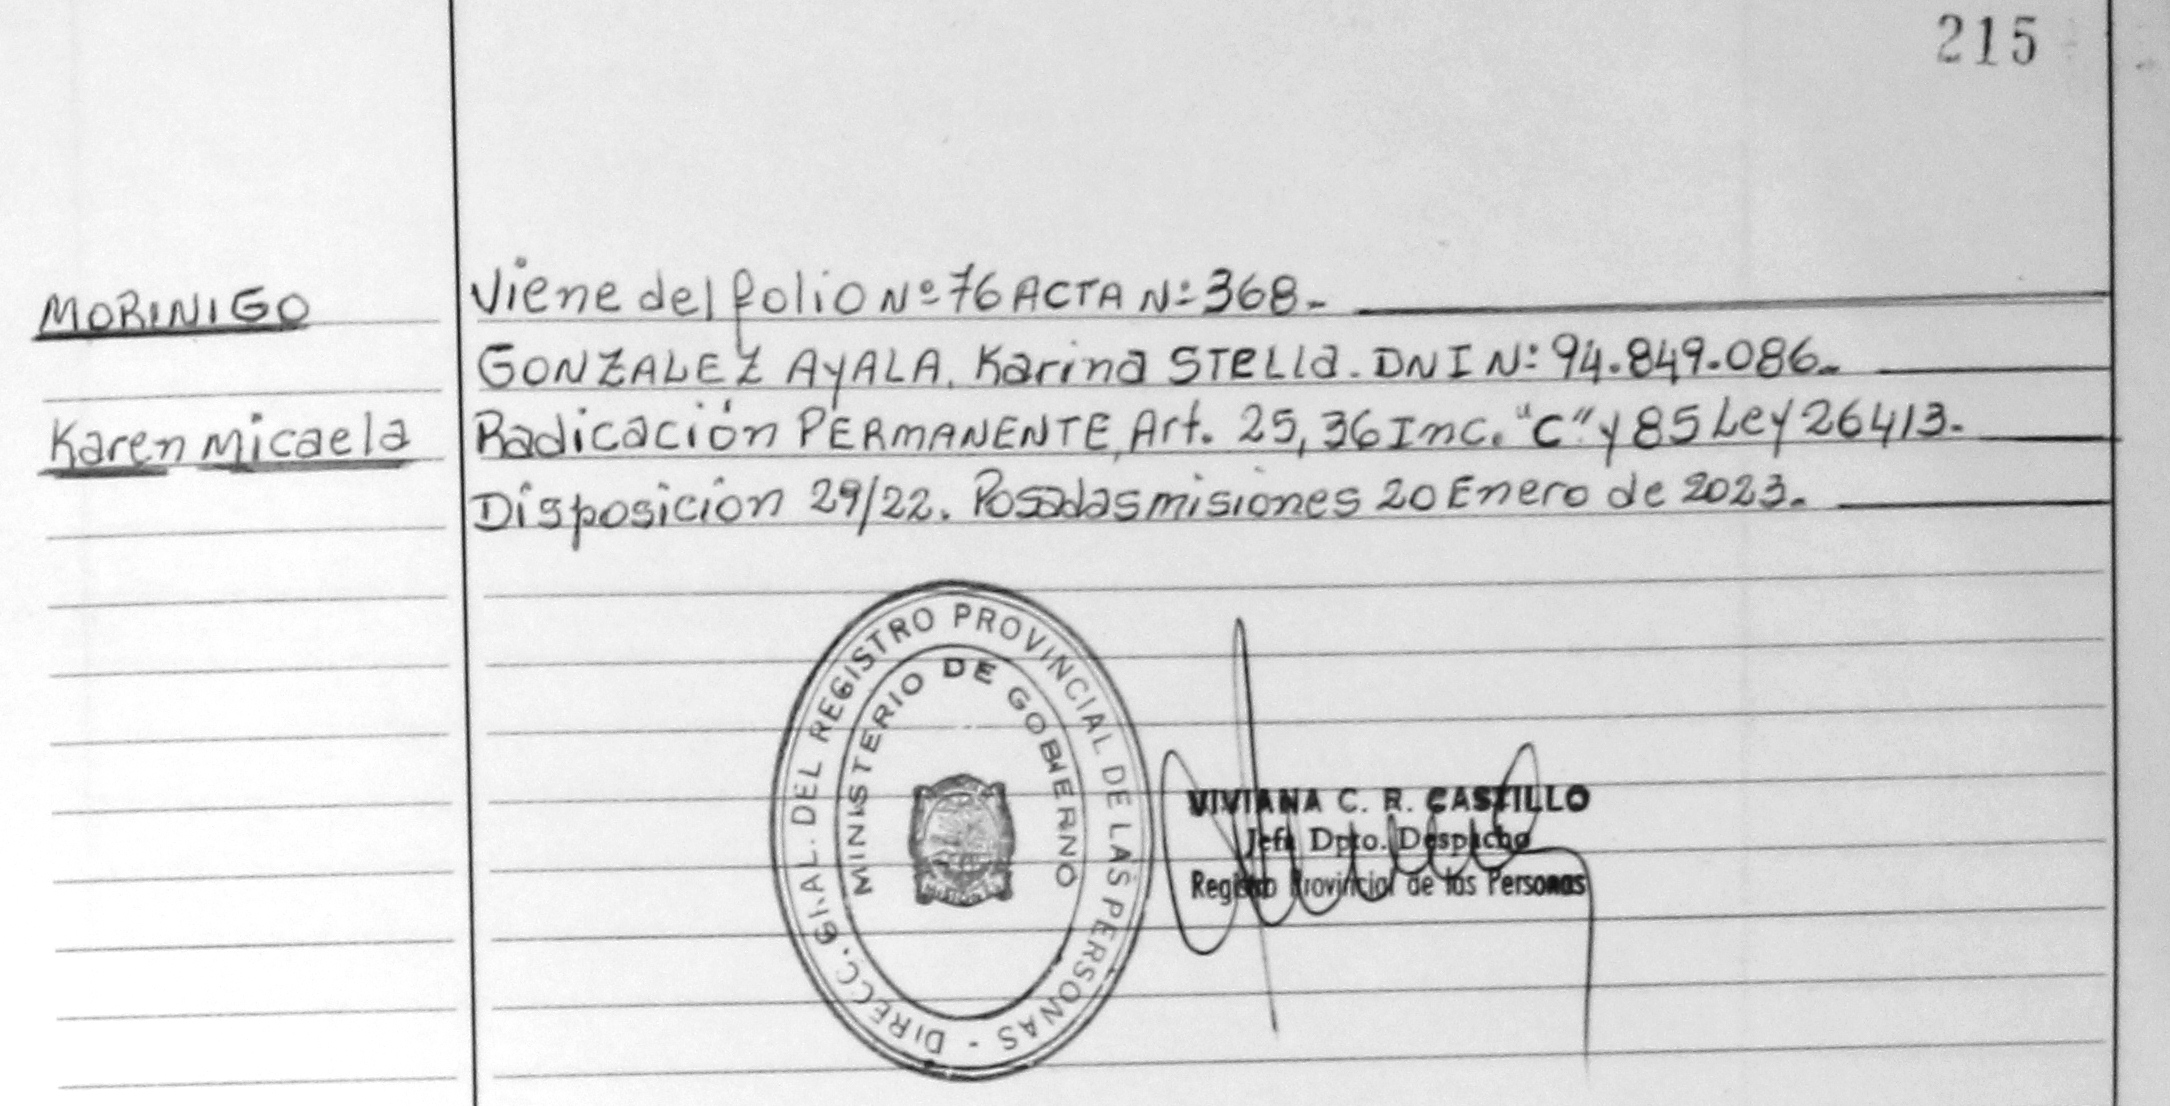 215
MORINIGO
Karen Micaela
Viene del folio Nº 76 ACTA Nº 368.-
GONZALEZ AYALA, Karina STELLA. DNI Nº 94.849.086.-
Radicación PERMANENTE, Art. 25, 36 Inc. "C" y 85 Ley 26413.-
Disposición 29/22. Posadas misiones 20 Enero de 2023.-
DIRECC. GRAL. DEL REGISTRO PROVINCIAL DE LAS PERSONAS -
MINISTERIO DE GOBIERNO
VIVIANA C. R. CASTILLO
Jefa Dpto. Despacho
Registro Provincial de las Personas